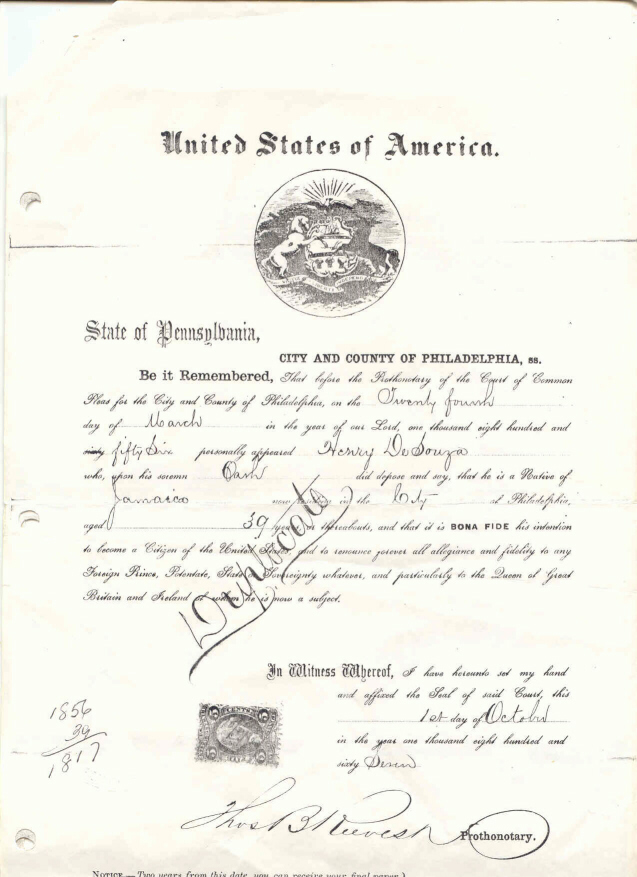 United States of America.
State of Pennsylvania,
CITY AND COUNTY OF PHILADELPHIA, ss.
Be it Remembered, That before the Prothonotary of the Court of Common
Pleas for the City and County of Philadelphia, on the Twenty fourth
day of March in the year of our Lord, one thousand eight hundred and
sixty fifty Six personally appeared Henry De Souza
who, upon his solemn Oath did depose and say, that he is a Native of
Jamaica now residing in the City of Philadelphia,
aged 39 years or thereabouts, and that it is BONA FIDE his intention
to become a Citizen of the United States, and to renounce forever all allegiance and fidelity to any
Foreign Prince, Potentate, State or Sovereignty whatever, and particularly to the Queen of Great
Britain and Ireland of whom he is now a subject.
Duplicate
In Witness Whereof, I have hereunto set my hand
and affixed the Seal of said Court, this
1st day of October
in the year one thousand eight hundred and
sixty Seven
1856
39
1817
5 CENTS 5
Thos B Reeves Prothonotary.
NOTICE.—Two years from this date, you can receive your final paper.)